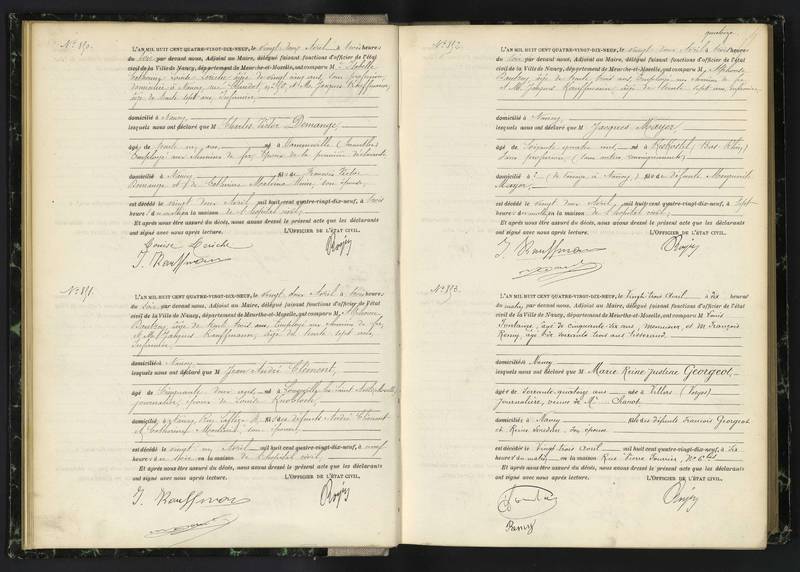 Nº 850.
L'AN MIL HUIT CENT QUATRE-VINGT-DIX-NEUF, le vingt deux Avril à trois heures
du soir par devant nous, Adjoint au Maire, délégué faisant fonctions d'officier de l'état
civil de la Ville de Nancy, département de Meurthe-et-Moselle, ont comparu M
Catherine Louise âgée de vingt cinq ans, sans profession,
domiciliée à Nancy, rue et M. Jacques Kauffmann,
âgé de trente sept ans, infirmier,
domicilié à Nancy
lesquels nous ont déclaré que M Charles Victor Demange,
âgé de trente un ans, né à
Employé aux chemins de fer, époux de la première déclarante
domicilié à Nancy fils de François Victor
Demange et de Catherine son épouse,
est décédé le vingt deux Avril, mil huit cent quatre-vingt-dix-neuf, à trois
heures du matin en la maison de l'hôpital civil,
Et après nous être assuré du décès, nous avons dressé le présent acte que les déclarants
ont signé avec nous après lecture. L'OFFICIER DE L'ÉTAT CIVIL.
J. Kauffman
Nº 851.
L'AN MIL HUIT CENT QUATRE-VINGT-DIX-NEUF, le vingt deux Avril à trois heures
du soir, par devant nous, Adjoint au Maire, délégué faisant fonctions d'officier de l'état
civil de la Ville de Nancy, département de Meurthe-et-Moselle, ont comparu M. Alphonse
âgé de trente trois ans, Employé aux chemins de fer,
et M. Jacques Kauffmann, âgé de trente sept ans,
infirmier,
domiciliés à Nancy
lesquels nous ont déclaré que M Jean André Clément,
âgé de Cinquante deux ans, né à
journalier, époux de Louise Knobloch,
domicilié à Nancy, Rue fils de défunts André Clément
et Catherine son épouse,
est décédé le vingt un Avril mil huit cent quatre-vingt-dix-neuf, à neuf
heures du soir, en la maison de l'hôpital civil,
Et après nous être assuré du décès, nous avons dressé le présent acte que les déclarants
ont signé avec nous après lecture. L'OFFICIER DE L'ÉTAT CIVIL.
J. Kauffman
Nº 852.
L'AN MIL HUIT CENT QUATRE-VINGT-DIX-NEUF, le vingt deux Avril à trois heures
du soir par devant nous, Adjoint au Maire, délégué faisant fonctions d'officier de l'état
civil de la Ville de Nancy, département de Meurthe-et-Moselle, ont comparu M. Alphonse
âgé de trente trois ans, Employé au chemin de fer
et M. Jacques Kauffmann, âgé de trente sept ans, infirmier,
domicilié à Nancy,
lesquels nous ont déclaré que M Jacques Mayer,
âgé de Soixante quatre ans né à (Bas Rhin)
Sans profession, (sans autres renseignements)
domicilié à fils de défunte Marguerite
Mayer,
est décédé le vingt deux Avril, mil huit cent quatre-vingt-dix-neuf, à sept
heures du matin en la maison de l'hôpital civil,
Et après nous être assuré du décès, nous avons dressé le présent acte que les déclarants
ont signé avec nous après lecture. L'OFFICIER DE L'ÉTAT CIVIL.
J. Kauffman
Nº 853.
L'AN MIL HUIT CENT QUATRE-VINGT-DIX-NEUF, le Vingt trois Avril à dix heures
du matin, par devant nous, Adjoint au Maire, délégué faisant fonctions d'officier de l'état
civil de la Ville de Nancy, département de Meurthe-et-Moselle, ont comparu M. Louis
Fontaine, âgé de cinquante dix ans, menuisier, et M. François
Remy, âgé de soixante trois ans tisserand.
domiciliés à Nancy
lesquels nous ont déclaré que M Marie Reine Justine Georgeol,
âgée de Soixante quatorze ans née à Villers (Vosges)
journalière, veuve de M
domiciliée à Nancy fille de défunts François Georgeol
et Reine son épouse
est décédée le Vingt trois Avril mil huit cent quatre-vingt-dix-neuf, à dix
heures du matin, en la maison Rue Pierre Fourrier,
Et après nous être assuré du décès, nous avons dressé le présent acte que les déclarants
ont signé avec nous après lecture. L'OFFICIER DE L'ÉTAT CIVIL.
Remy